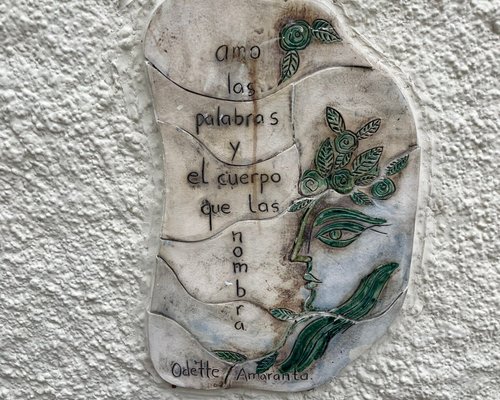 amo
las
palabras
y
el cuerpo
que las
nombra
Odette / Amaranta.